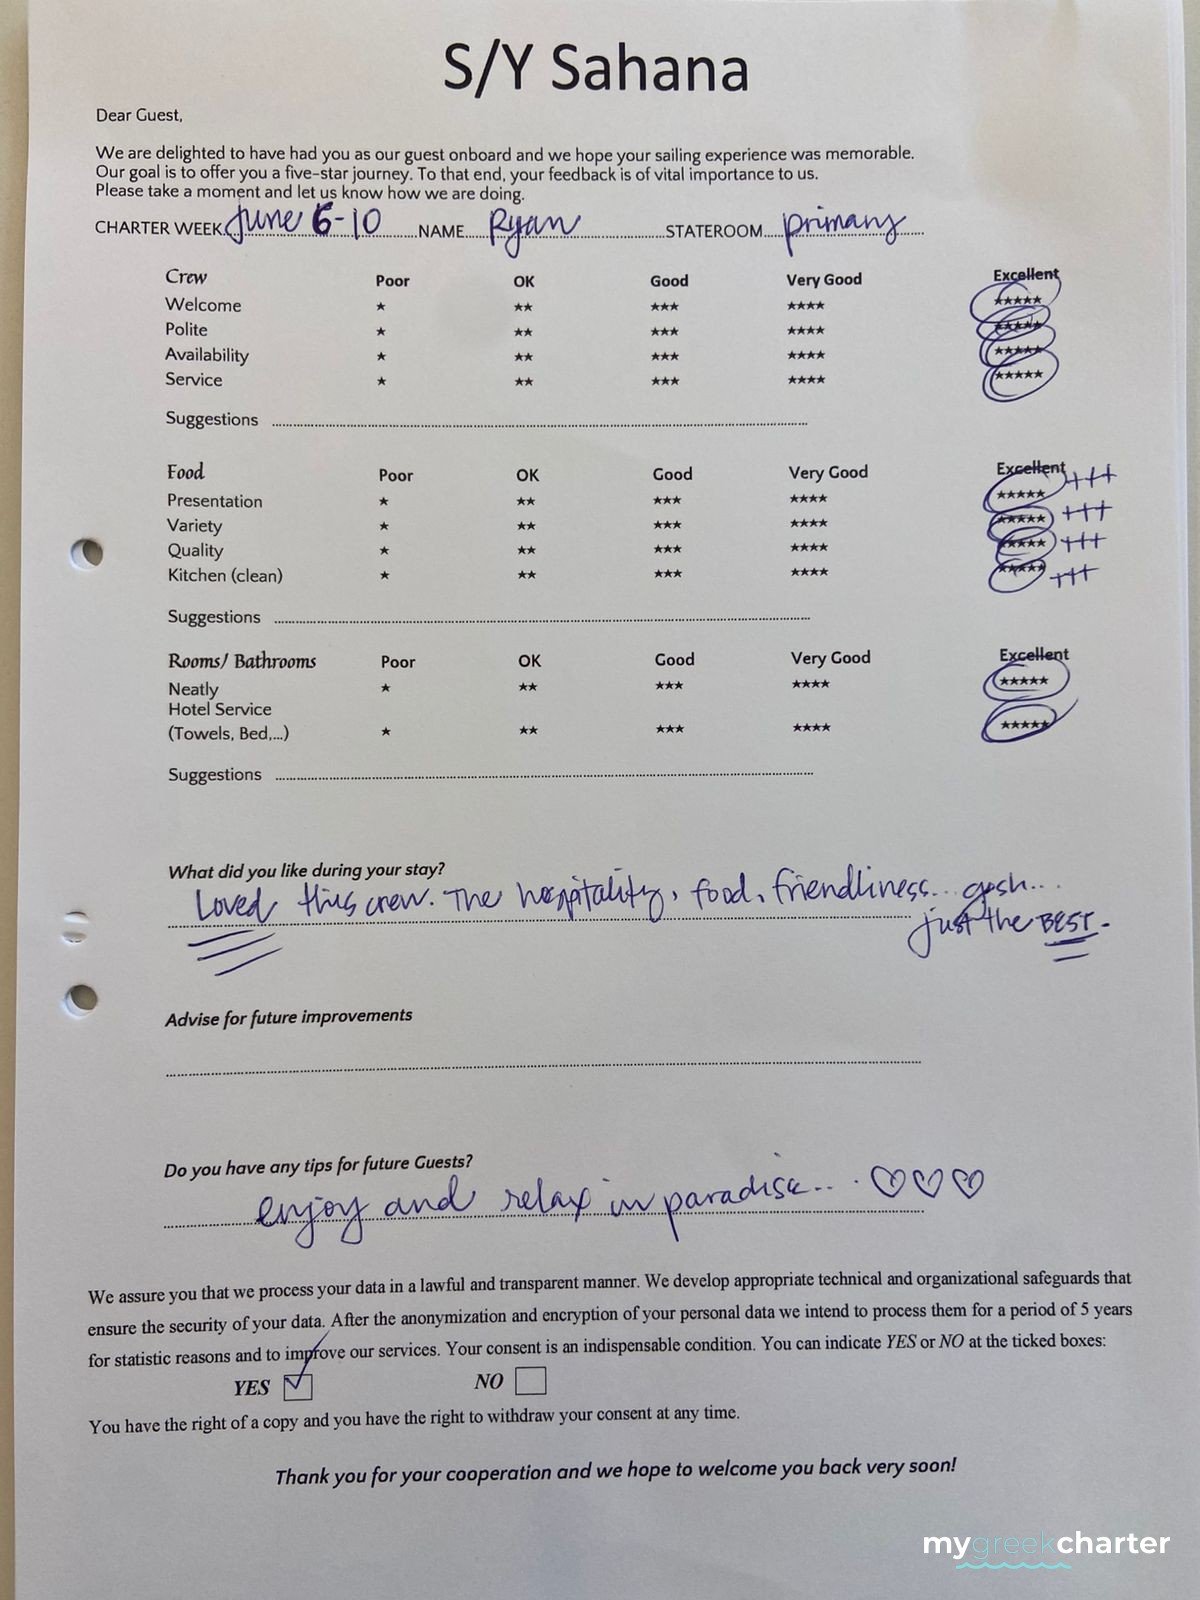 S/Y Sahana
Dear Guest,
We are delighted to have had you as our guest onboard and we hope your sailing experience was memorable.
Our goal is to offer you a five-star journey. To that end, your feedback is of vital importance to us.
Please take a moment and let us know how we are doing.
CHARTER WEEK June 6-10 NAME Ryan STATEROOM primary
Crew Poor OK Good Very Good Excellent
Welcome ★ ★★ ★★★ ★★★★ ★★★★★
Polite ★ ★★ ★★★ ★★★★ ★★★★★
Availability ★ ★★ ★★★ ★★★★ ★★★★★
Service ★ ★★ ★★★ ★★★★ ★★★★★
Suggestions
Food Poor OK Good Very Good Excellent
Presentation ★ ★★ ★★★ ★★★★ ★★★★★ +++
Variety ★ ★★ ★★★ ★★★★ ★★★★★ +++
Quality ★ ★★ ★★★ ★★★★ ★★★★★ +++
Kitchen (clean) ★ ★★ ★★★ ★★★★ ★★★★★ +++
Suggestions
Rooms/ Bathrooms Poor OK Good Very Good Excellent
Neatly ★ ★★ ★★★ ★★★★ ★★★★★
Hotel Service
(Towels, Bed,...) ★ ★★ ★★★ ★★★★ ★★★★★
Suggestions
What did you like during your stay?
Loved this crew. The hospitality, food, friendliness... gosh...
just the BEST.
Advise for future improvements
Do you have any tips for future Guests?
enjoy and relax in paradise... ♡♡♡
We assure you that we process your data in a lawful and transparent manner. We develop appropriate technical and organizational safeguards that
ensure the security of your data. After the anonymization and encryption of your personal data we intend to process them for a period of 5 years
for statistic reasons and to improve our services. Your consent is an indispensable condition. You can indicate YES or NO at the ticked boxes:
YES ☑ NO ☐
You have the right of a copy and you have the right to withdraw your consent at any time.
Thank you for your cooperation and we hope to welcome you back very soon!
mygreekcharter